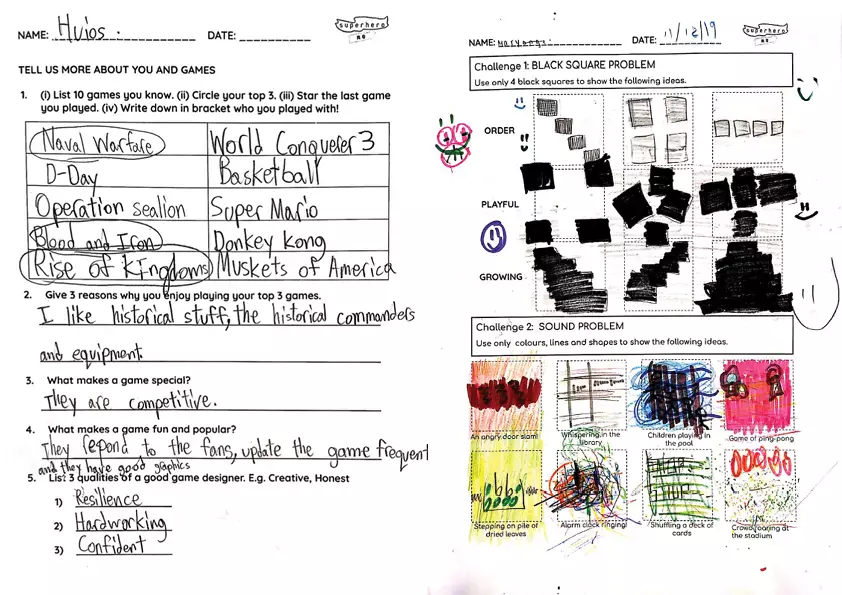 NAME: Huios.
DATE:
superhero
TELL US MORE ABOUT YOU AND GAMES
1. (i) List 10 games you know. (ii) Circle your top 3. (iii) Star the last game
you played. (iv) Write down in bracket who you played with!
Naval Warfare World Conquerer 3
D-Day Basketball
Operation sealion Super Mario
Blood and Iron Donkey Kong
Rise of Kingdoms Muskets of America
2. Give 3 reasons why you enjoy playing your top 3 games.
I like historical stuff, the historical commanders
and equipment.
3. What makes a game special?
They are competitive.
4. What makes a game fun and popular?
They repond to the fans, update the game frequent
and they have good graphics
5. List 3 qualities of a good game designer. E.g. Creative, Honest
1) Resilience
2) Hardworking
3) Confident
NAME:
DATE: 11/12/19
superhero
Challenge 1: BLACK SQUARE PROBLEM
Use only 4 black squares to show the following ideas.
ORDER
PLAYFUL
GROWING
Challenge 2: SOUND PROBLEM
Use only colours, lines and shapes to show the following ideas.
An angry door slam!
Whispering in the
library
Children playing in
the pool
Game of ping-pong
Stepping on pile of
dried leaves
Alarm clock ringing!
Shuffling a deck of
cards
Crowd roaring at
the stadium